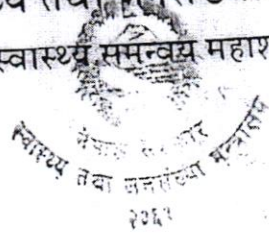 स्वास्थ्य समन्वय महाश
नेपाल सरकार
स्वास्थ्य तथा जनसंख्या मन्त्रालय